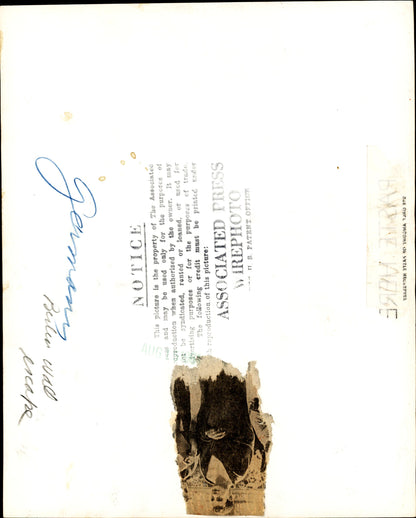 Germany
Berlin Wall
escape
NOTICE
This picture is the property of The Associated
and may be used only for the purposes of
reproduction when authorized by the owner. It may
not be syndicated, rented or loaned, or used for
advertising purposes or for the purposes of trade.
The following credit must be printed under
reproduction of this picture:
ASSOCIATED PRESS
WIREPHOTO
U S PATENT OFFICE